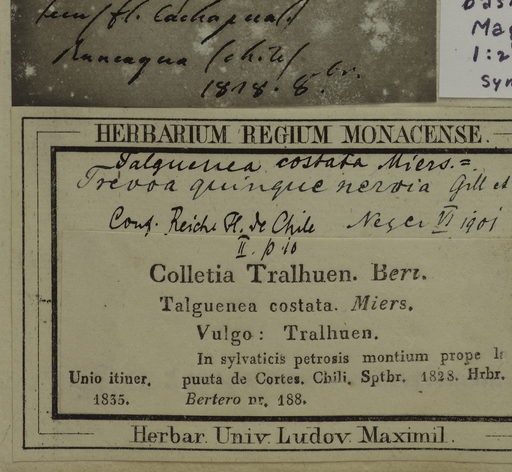 fl. Cachapual.
Rancagua (Chile)
1828. 8br.
Ma
1:2
Syn
HERBARIUM REGIUM MONACENSE.
Talguenea costata Miers. =
Trevoa quinquenervia Gill et
Conf. Reiche Fl. de Chile Neger VI 1901
II. p 10
Colletia Tralhuen. Bert.
Talguenea costata. Miers.
Vulgo: Tralhuen.
In sylvaticis petrosis montium prope
Unio itiner. puuta de Cortes. Chili. Sptbr. 1828. Hrbr.
1835. Bertero nr. 188.
Herbar. Univ. Ludov. Maximil.